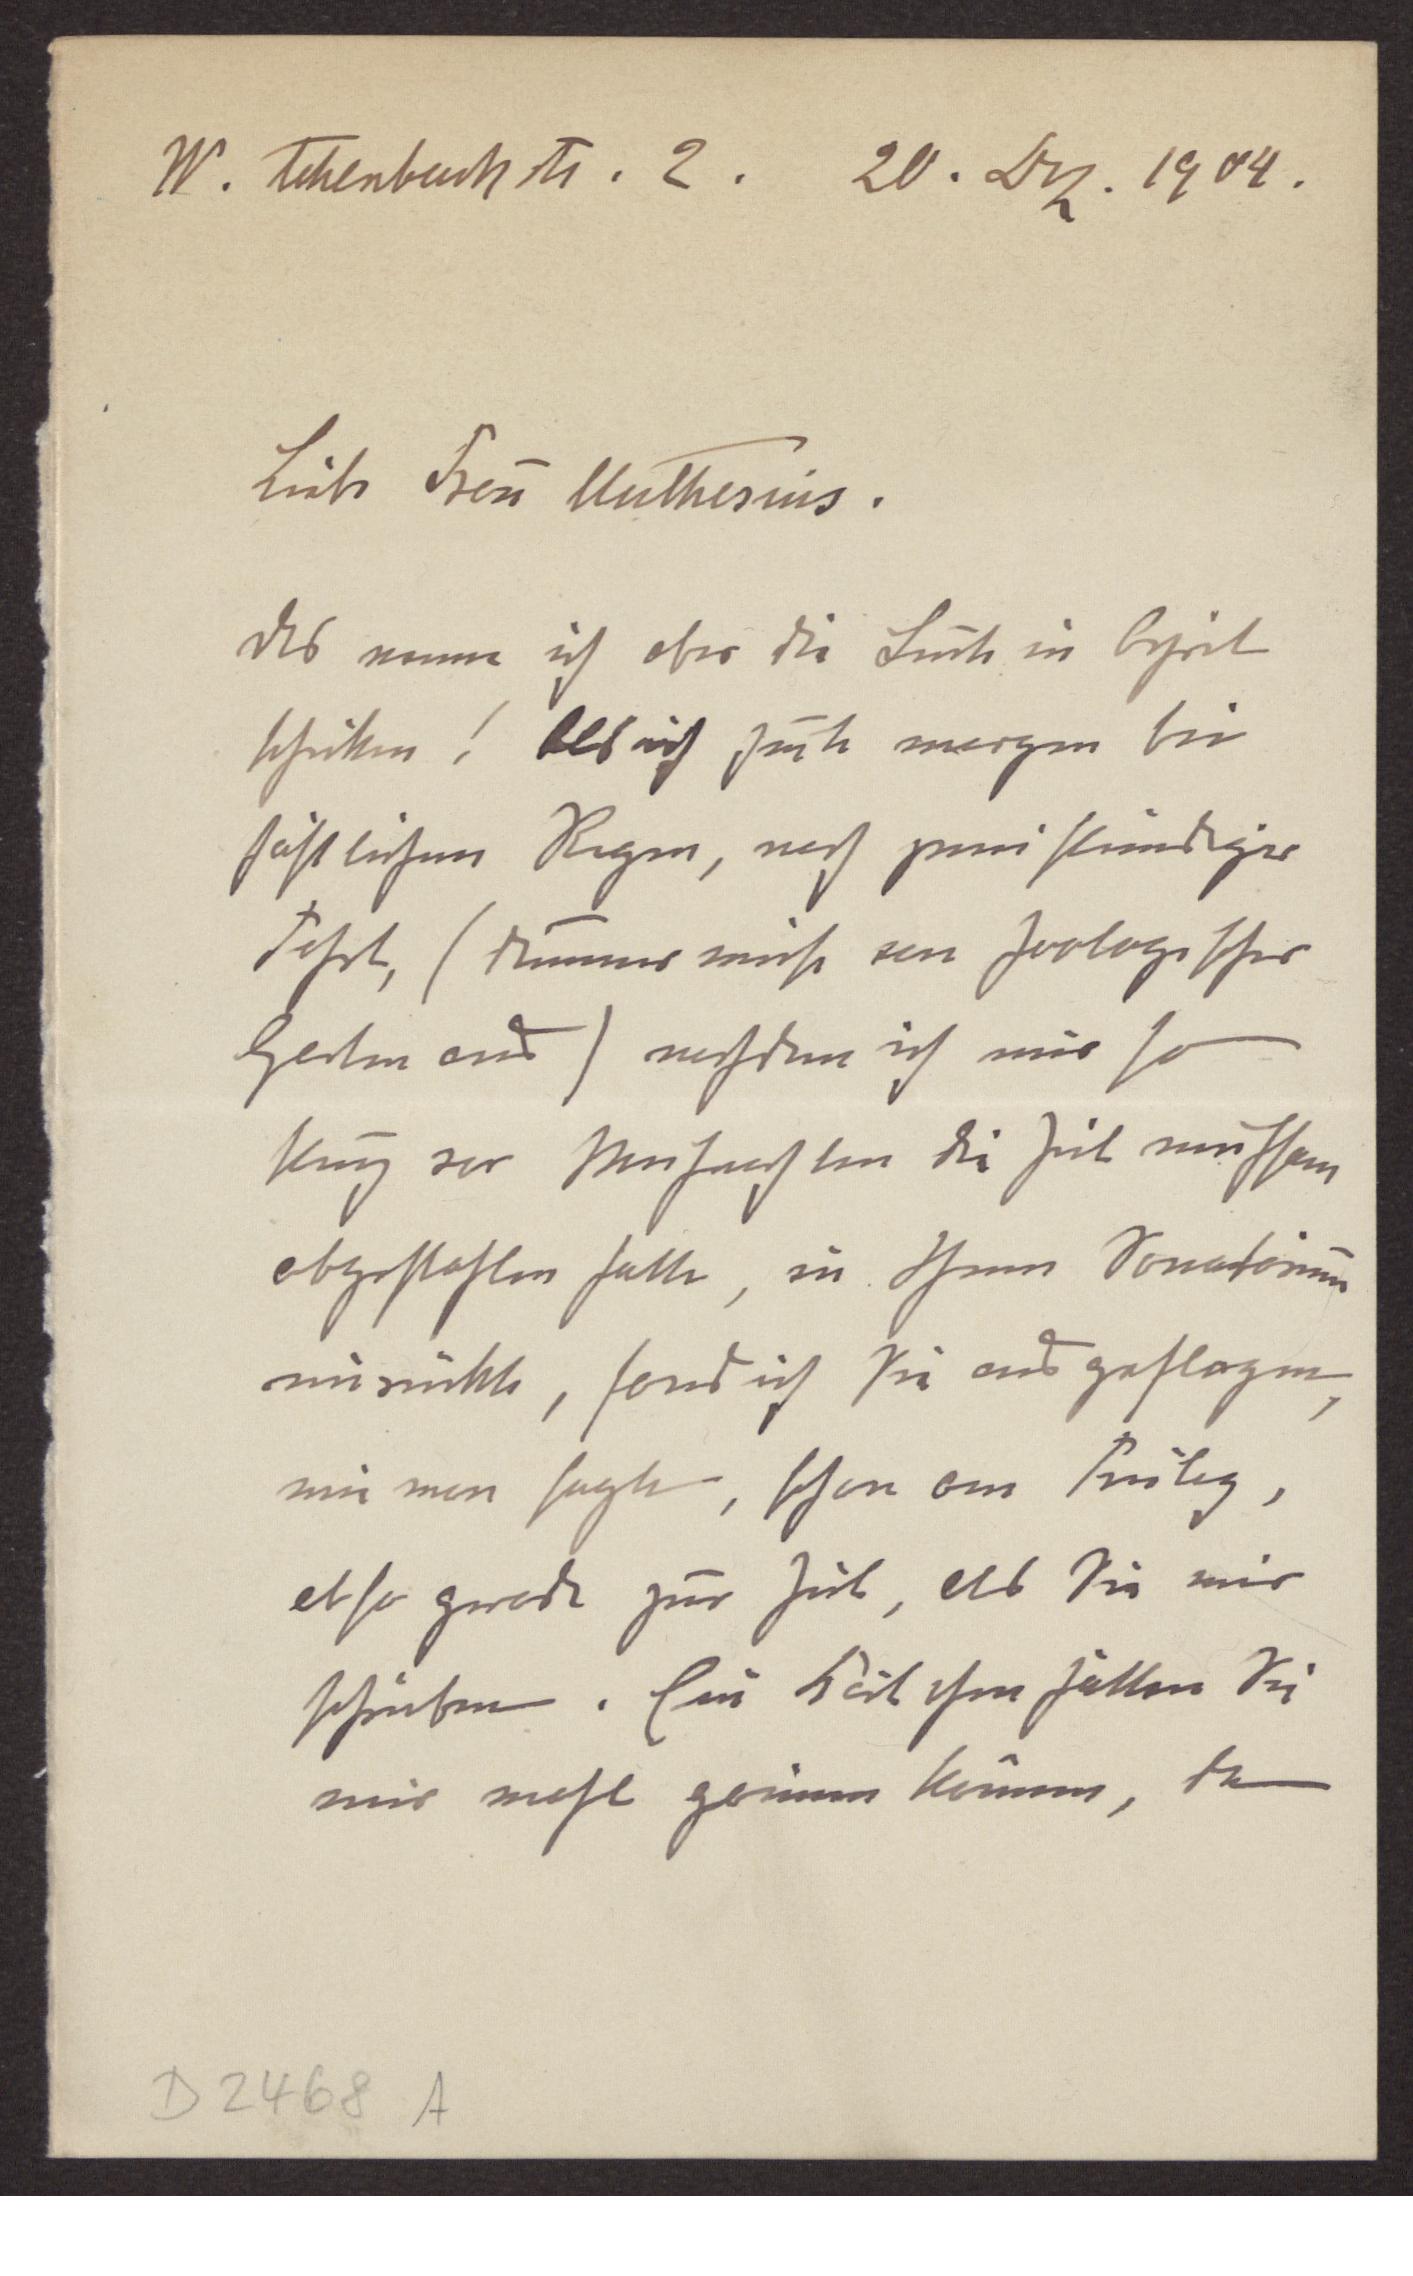 W. Achenbachstr. 2. 20. Dez. 1904.
Liebe Frau Muthesius.
Das nenne ich aber die Leute in April
schicken! Als ich heute morgen bei
häßlichem Regen, nach zweistündiger
Fahrt, (dummerweise von Zoologischer
Garten aus) nachdem ich mir so
kurz vor Weihnachten die Zeit mühsam
abgestohlen hatte, in Ihrem Sanatorium
einrückte, fand ich Sie ausgeflogen,
wie man sagte, schon am Freitag,
also gerade zur Zeit, als Sie mir
schrieben. Ein Kärtchen hätten Sie
mir wohl gönnen können, da
D 2468 A